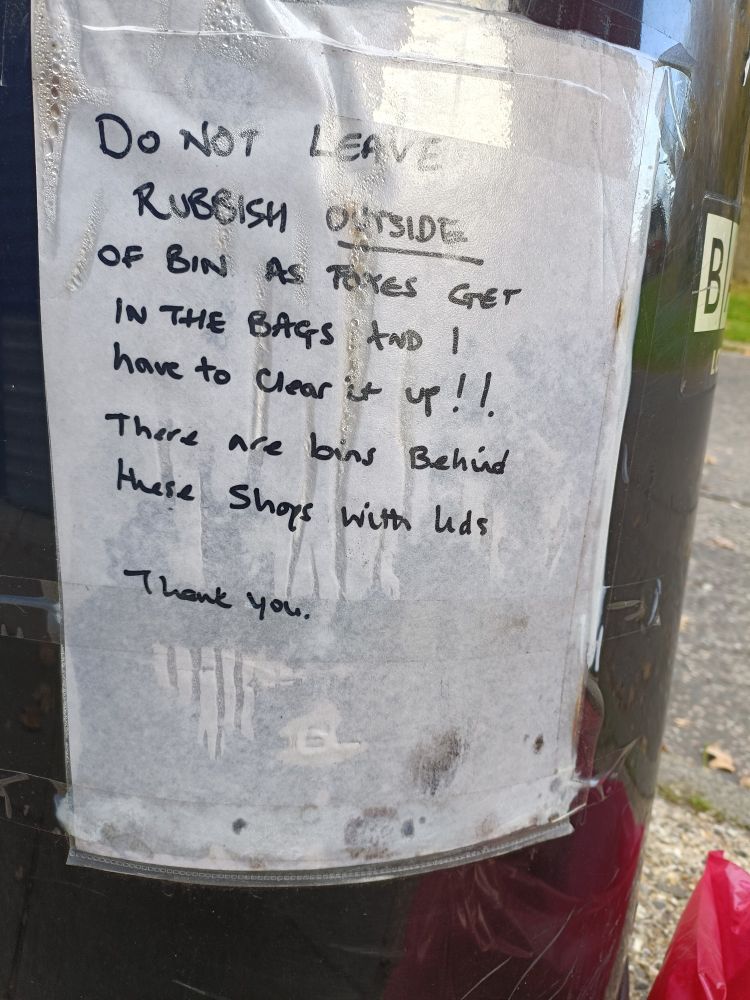 DO NOT LEAVE
RUBBISH OUTSIDE
OF BIN AS FOXES GET
IN THE BAGS AND I
have to clear it up!!
There are bins Behind
these Shops with lids
Thank you.
B